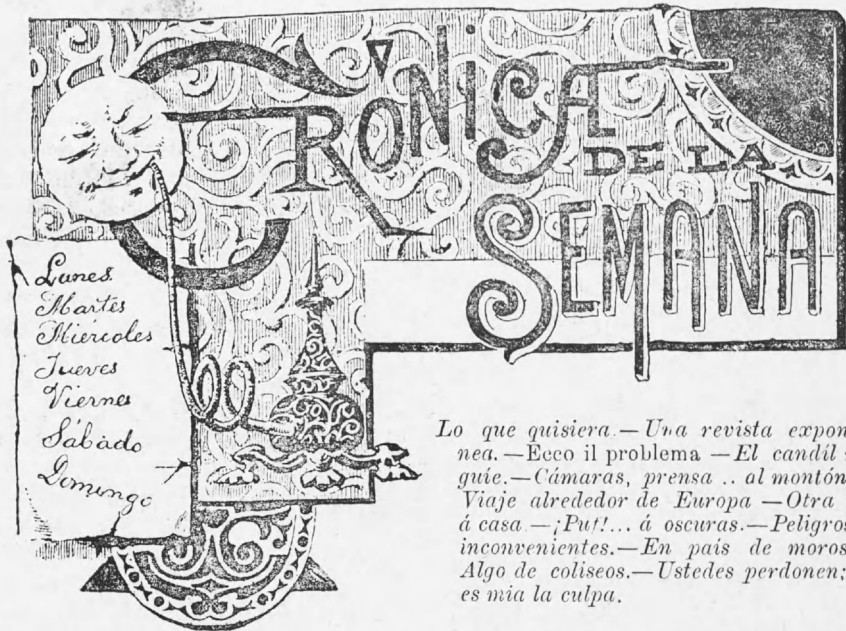 CRÓNICA
DE LA
SEMANA
Lunes
Martes
Miércoles
Jueves
Viernes
Sábado
Domingo
Lo que quisiera.—Una revista expon
nea.—Ecco il problema—El candil
guíe.—Cámaras, prensa .. al montón
Viaje alrededor de Europa—Otra
á casa—¡Puf!... á oscuras.—Peligros
inconvenientes.—En país de moros
Algo de coliseos.—Ustedes perdonen;
es mia la culpa.